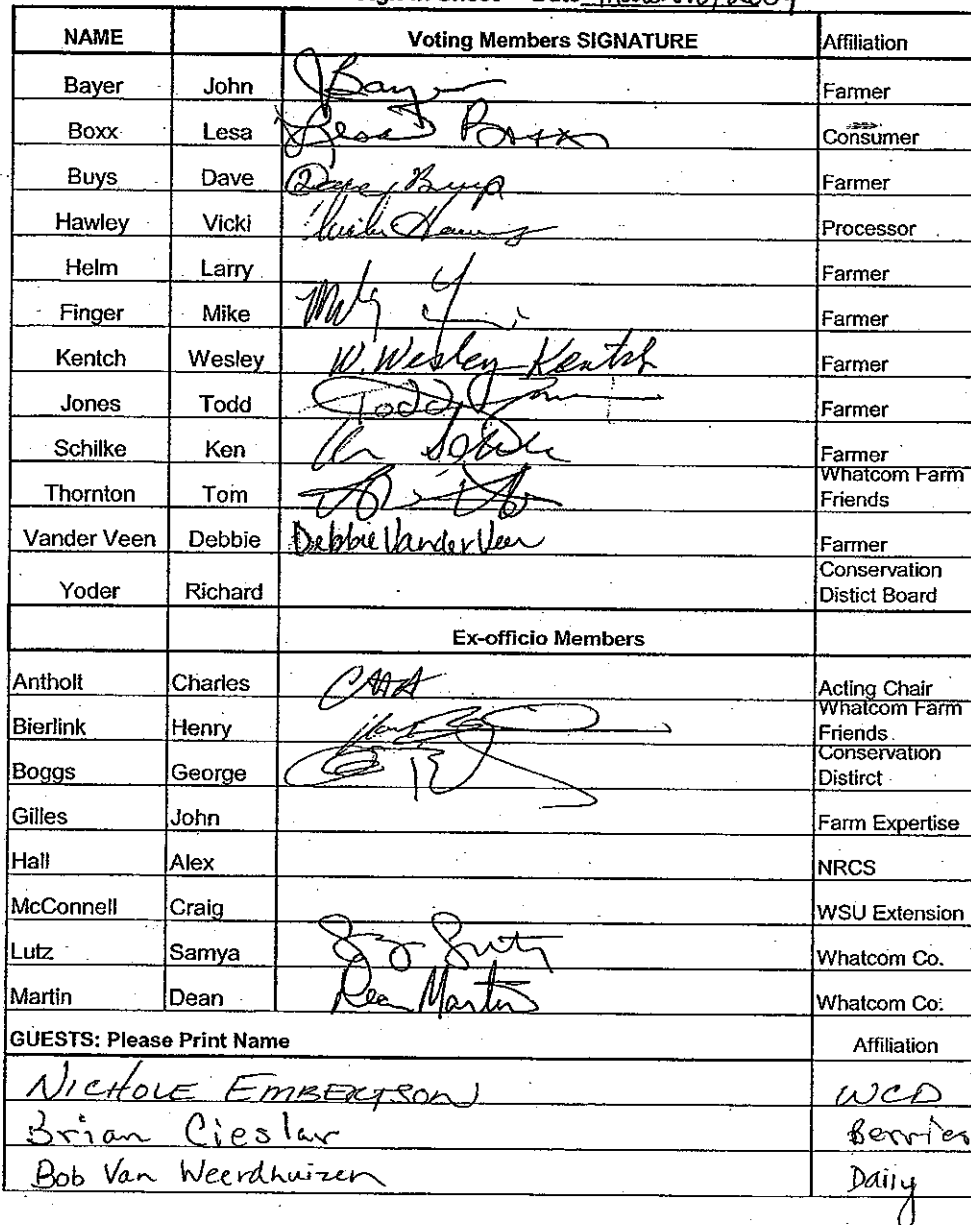 NAME Voting Members SIGNATURE Affiliation
Bayer John J Bayer Farmer
Boxx Lesa Lesa Boxx Consumer
Buys Dave Dave Buys Farmer
Hawley Vicki Processor
Helm Larry Farmer
Finger Mike Farmer
Kentch Wesley W. Wesley Kentch Farmer
Jones Todd Todd Jones Farmer
Schilke Ken Ken Farmer
Thornton Tom Whatcom Farm
Friends
Vander Veen Debbie Debbie Vander Veen Farmer
Yoder Richard Conservation
Distict Board
Ex-officio Members
Antholt Charles Acting Chair
Bierlink Henry Whatcom Farm
Friends
Boggs George Conservation
Distirct
Gilles John Farm Expertise
Hall Alex NRCS
McConnell Craig WSU Extension
Lutz Samya Whatcom Co.
Martin Dean Dean Martin Whatcom Co.
GUESTS: Please Print Name Affiliation
NICHOLE EMBERTSON WCD
Brian Cieslar Berries
Bob Van Weerdhuizen Dairy